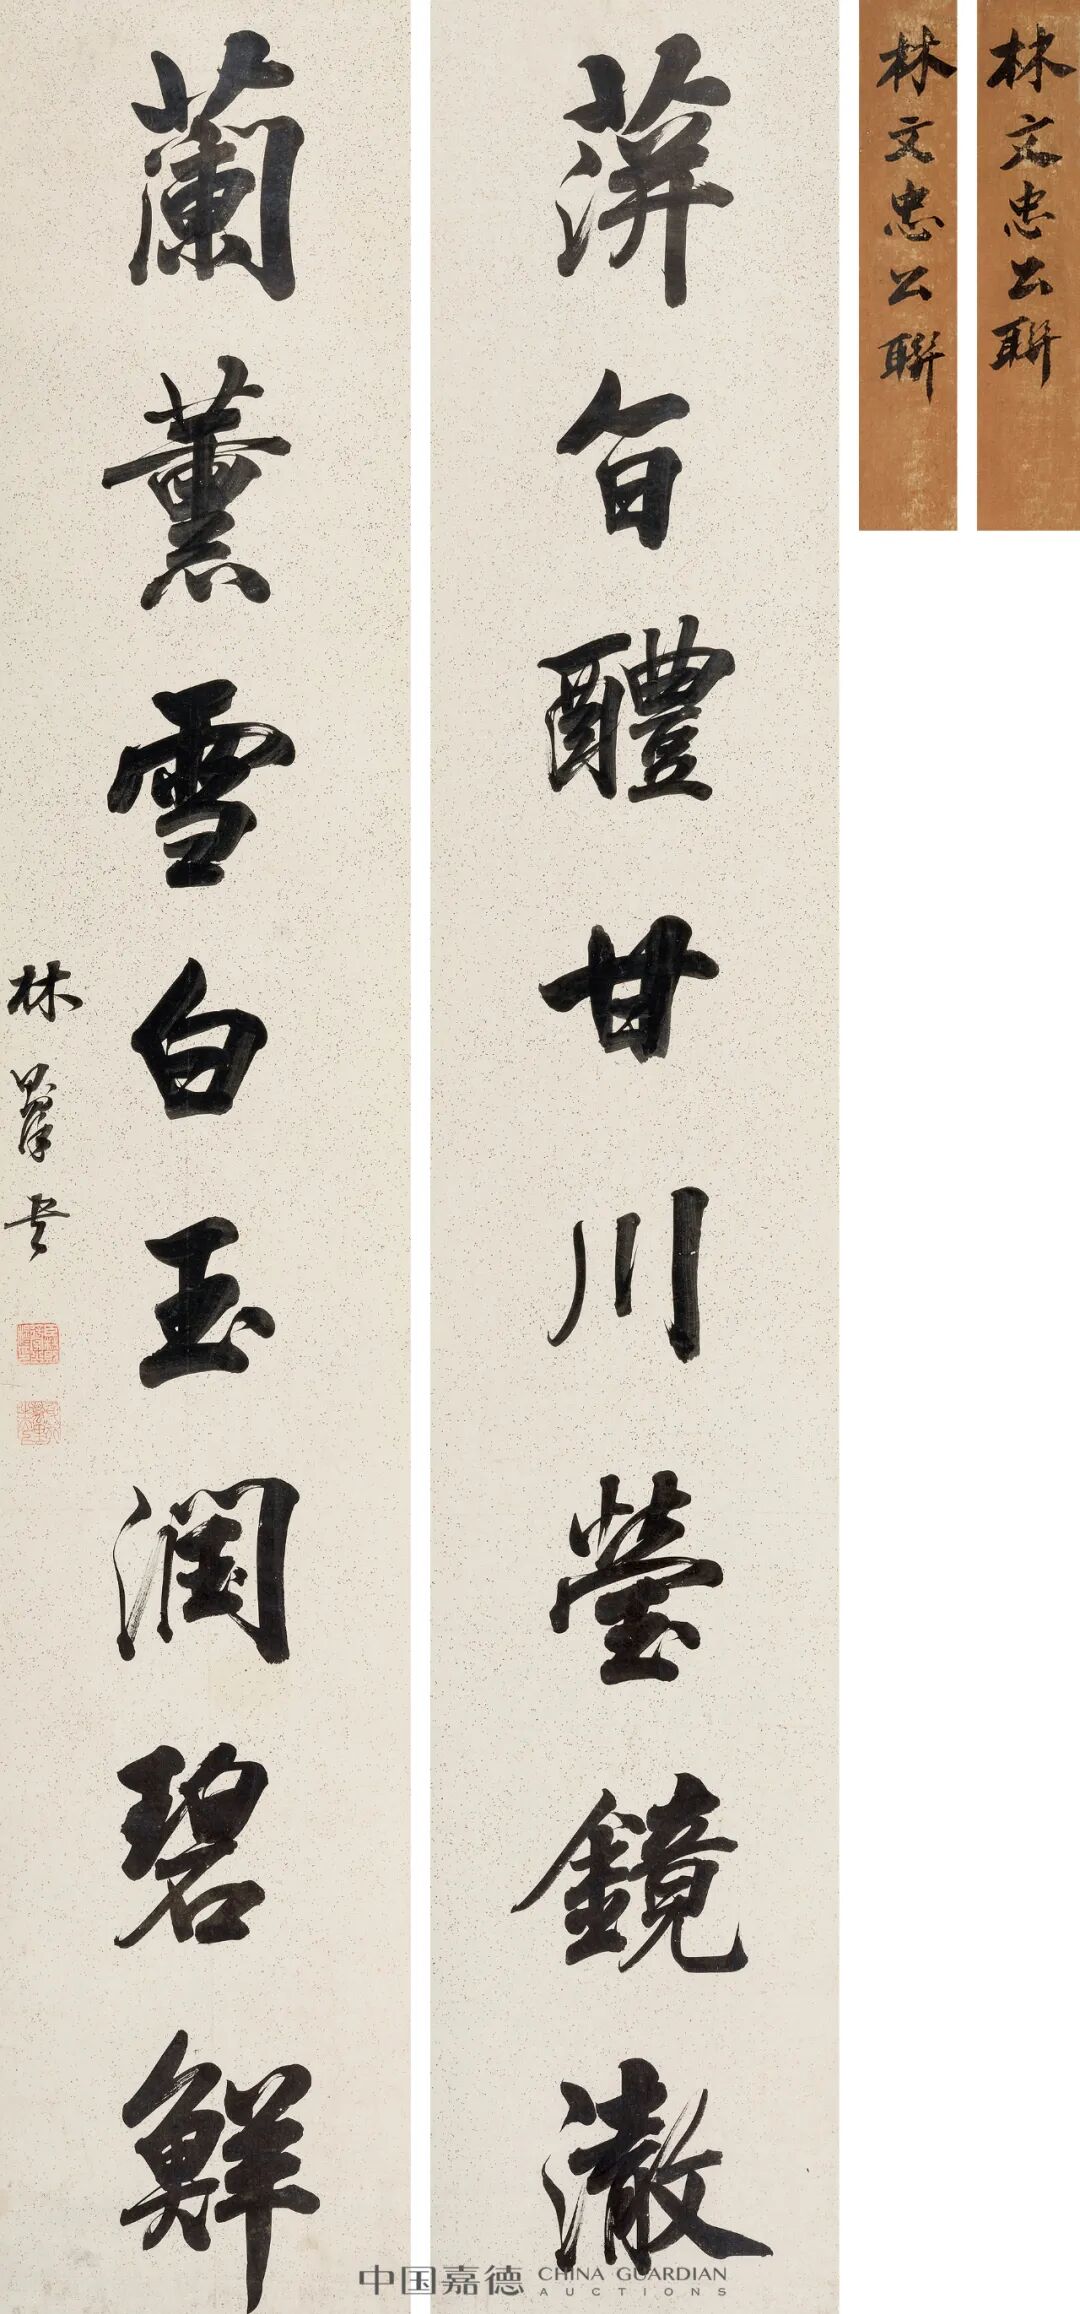 林文忠公聯
林文忠公聯
蓱旨醴甘川瑩鏡澈
蘭薰雪白玉潤碧鮮
林則徐
中国嘉德 CHINA GUARDIAN
AUCTIONS